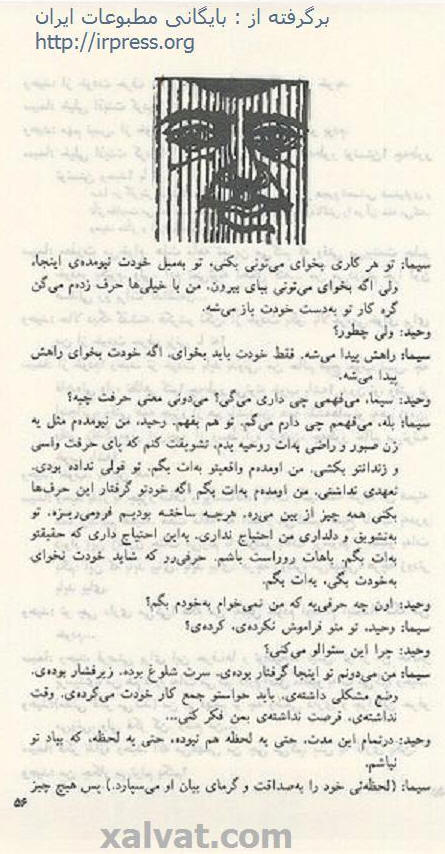 برگرفته از : بایگانی مطبوعات ایران
http://irpress.org
سیما: تو هر کاری بخوای می‌تونی بکنی، تو به‌میل خودت نیومده‌ی اینجا،
ولی اگه بخوای می‌تونی بیای بیرون. من با خیلی‌ها حرف زده‌م می‌گن
گره کار تو به‌دست خودت باز می‌شه.
وحید: ولی چطور؟
سیما: راهش پیدا می‌شه. فقط خودت باید بخوای، اگه خودت بخوای راهش
پیدا می‌شه.
وحید: سیما، می‌فهمی چی داری می‌گی؟ می‌دونی معنی حرفت چیه؟
سیما: بله، می‌فهمم چی دارم می‌گم. تو هم بفهم. وحید، من نیومده‌م مثل یه
زن صبور و راضی به‌ات روحیه بدم. تشویقت کنم که پای حرفت واسی
و زندانتو بکشی. من اومده‌م واقعیتو به‌ات بگم. تو قولی نداده بودی.
تعهدی نداشتی. من اومده‌م به‌ات بگم اگه خودتو گرفتار این حرف‌ها
بکنی همه چیز از بین می‌ره. هرچه ساخته بودیم فرومی‌ریزه. تو
به‌تشویق و دلداری من احتیاج نداری. به‌این احتیاج داری که حقیقتو
به‌ات بگم. باهات روراست باشم. حرفی‌رو که شاید خودت نخوای
به‌خودت بگی، به‌ات بگم.
وحید: اون چه حرفی‌یه که من نمی‌خوام به‌خودم بگم؟
سیما: وحید، تو منو فراموش نکرده‌ی. کرده‌ی؟
وحید: چرا این سئوالو می‌کنی؟
سیما: من می‌دونم تو اینجا گرفتار بوده‌ی. سرت شلوغ بوده. زیرفشار بوده‌ی.
وضع مشکلی داشته‌ی. باید حواستو جمع کار خودت می‌کرده‌ی. وقت
نداشته‌ی. فرصت نداشته‌ی بمن فکر کنی...
وحید: درتمام این مدت، حتی یه لحظه هم نبوده، حتی یه لحظه، که بیاد تو
نباشم.
سیما: (لحظه‌ئی خود را به‌صداقت و گرمای بیان او می‌سپارد.) پس هیچ چیز
۵۶
xalvat.com